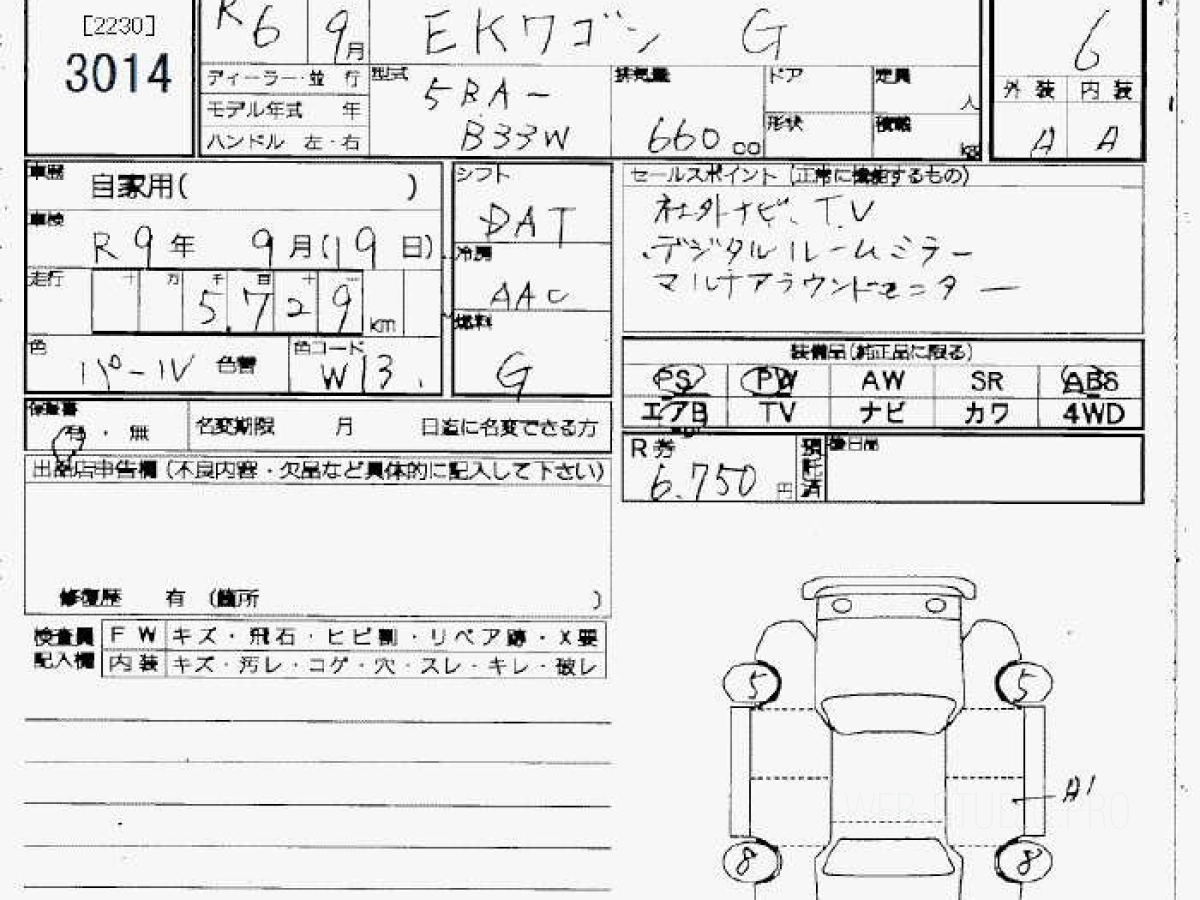 [2230]
3014
R6 9月 EKワゴン G 6
ディーラー・並行
モデル年式 年
ハンドル 左・右
型式 5BA-
B33W
排気量 660 cc
ドア 定員 人
形状 積載 kg
外装 内装
A A
車歴 自家用( )
車検 R9年 9月(19日)
走行 十 万 千 百 十 一
5.729 km
色 パール 色替
色コード W13.
シフト DAT
冷房 AAC
燃料 G
セールスポイント (正常に機能するもの)
社外ナビ、TV
デジタルルームミラー
マルチアラウンドモニター
装備品(純正品に限る)
PS PW AW SR ABS
エアB TV ナビ カワ 4WD
保証書 有・無
名変期限 月 日迄に名変できる方
R券 6.750 円
預託済
後日品
出品店申告欄(不良内容・欠品など具体的に記入して下さい)
修復歴 有 (箇所 )
検査員記入欄
FW キズ・飛石・ヒビ割・リペア跡・X要
内装 キズ・汚レ・コゲ・穴・スレ・キレ・破レ
5 5
A1
8 8